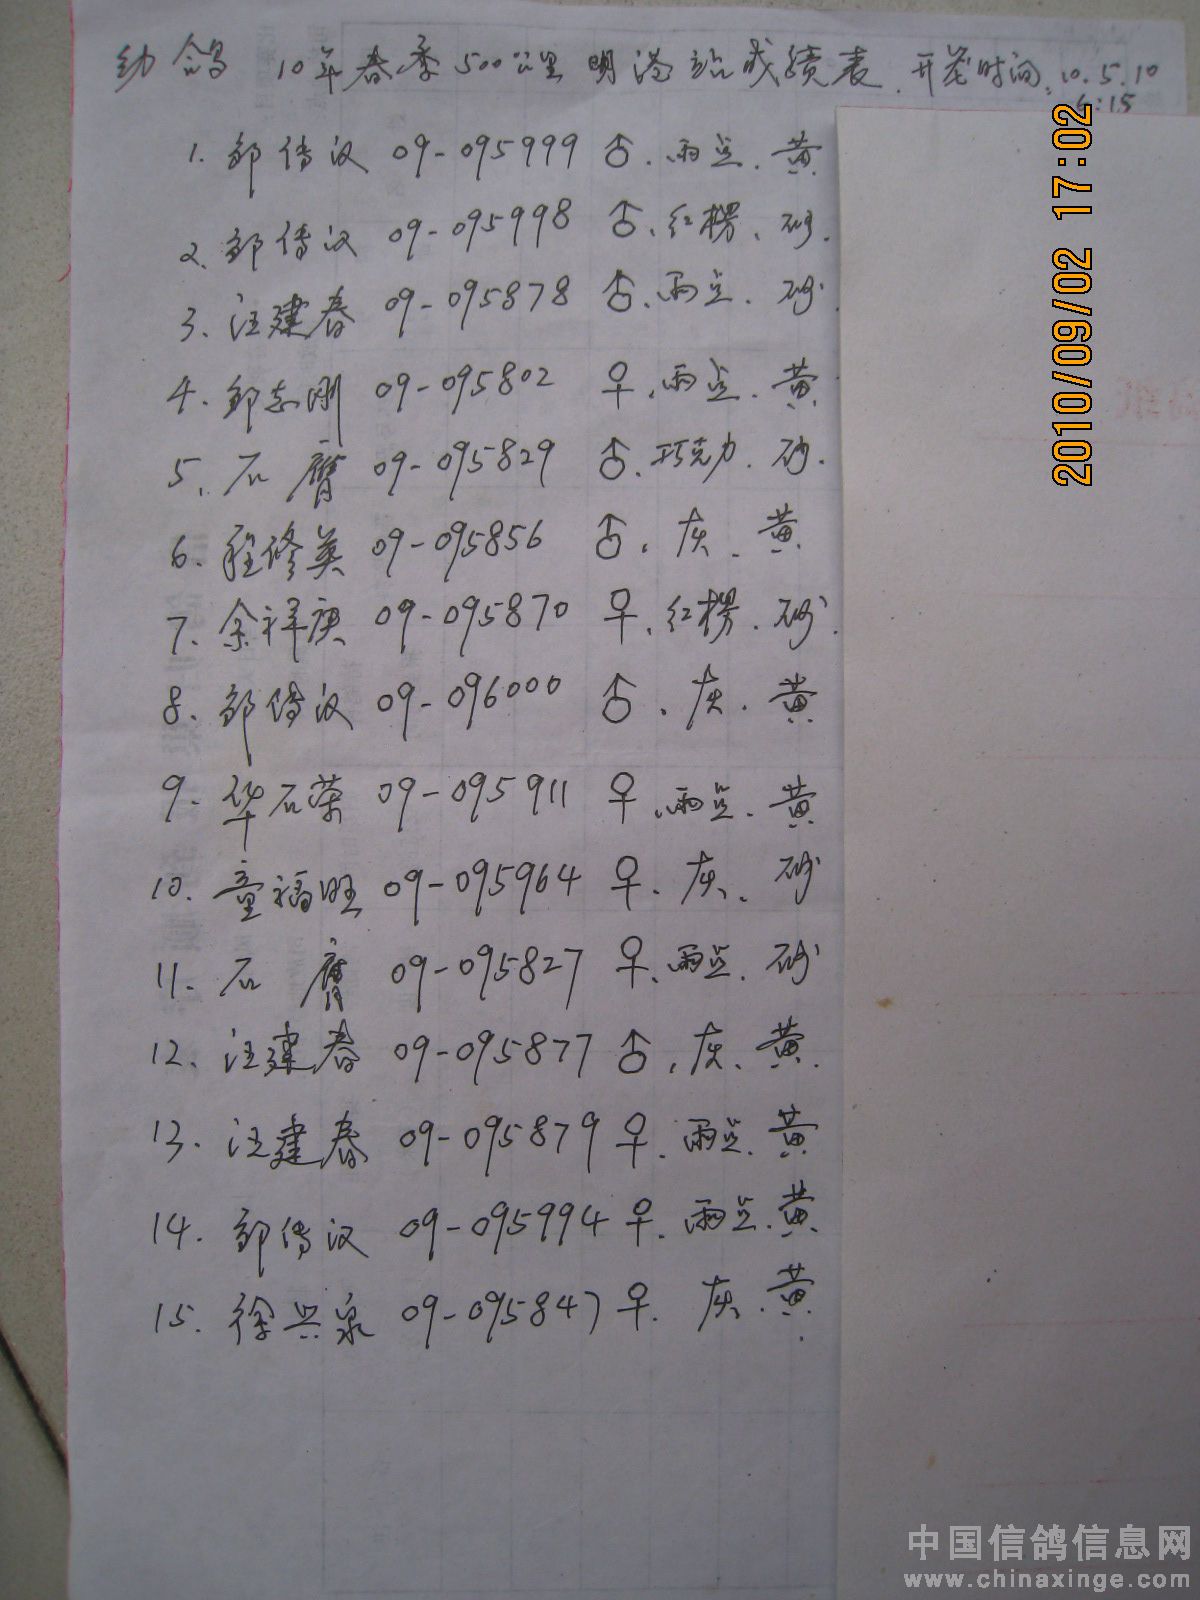 幼鸽 10年春季500公里明港站成绩表. 开笼时间: 10.5.10
6:15
1. 邹传汉 09-095999 ♂. 雨点. 黄
2. 邹传汉 09-095998 ♂. 红楞. 砂.
3. 汪建春 09-095878 ♂. 雨点. 砂.
4. 邹志刚 09-095802 ♀. 雨点. 黄
5. 石鹰 09-095829 ♂. 巧克力. 砂.
6. 程修英 09-095856 ♂. 灰. 黄
7. 余祥庚 09-095870 ♀. 红楞. 砂.
8. 邹传汉 09-096000 ♂. 灰. 黄
9. 华石荣 09-095911 ♀. 雨点. 黄
10. 童福旺 09-095964 ♀. 灰. 砂
11. 石鹰 09-095827 ♀. 雨点. 砂
12. 汪建春 09-095877 ♂. 灰. 黄.
13. 汪建春 09-095879 ♀. 雨点. 黄
14. 邹传汉 09-095994 ♀. 雨点. 黄.
15. 徐兴泉 09-095847 ♀. 灰. 黄.
2010/09/02 17:02
中国信鸽信息网
www.chinaxinge.com